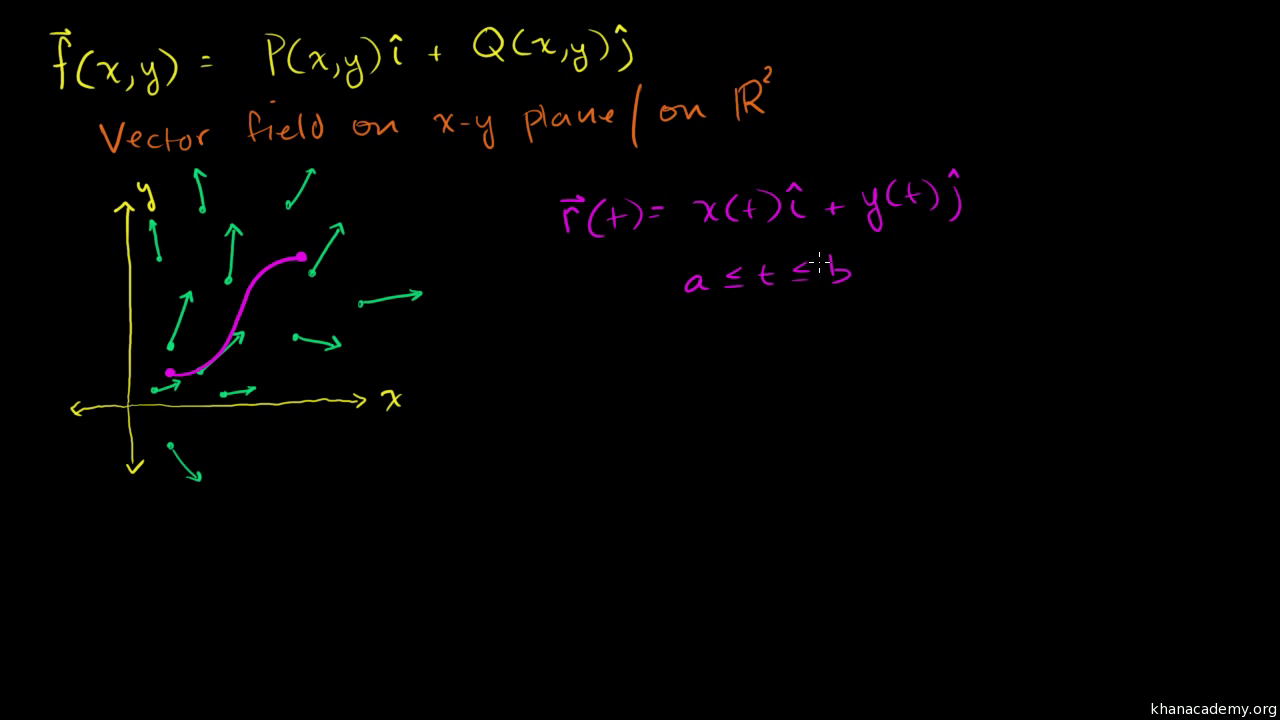 f⃗(x,y) = P(x,y)î + Q(x,y)ĵ
Vector field on x-y plane/on ℝ²
y
r⃗(t)= x(t)î + y(t)ĵ
a ≤ t ≤ b
x
khanacademy.org